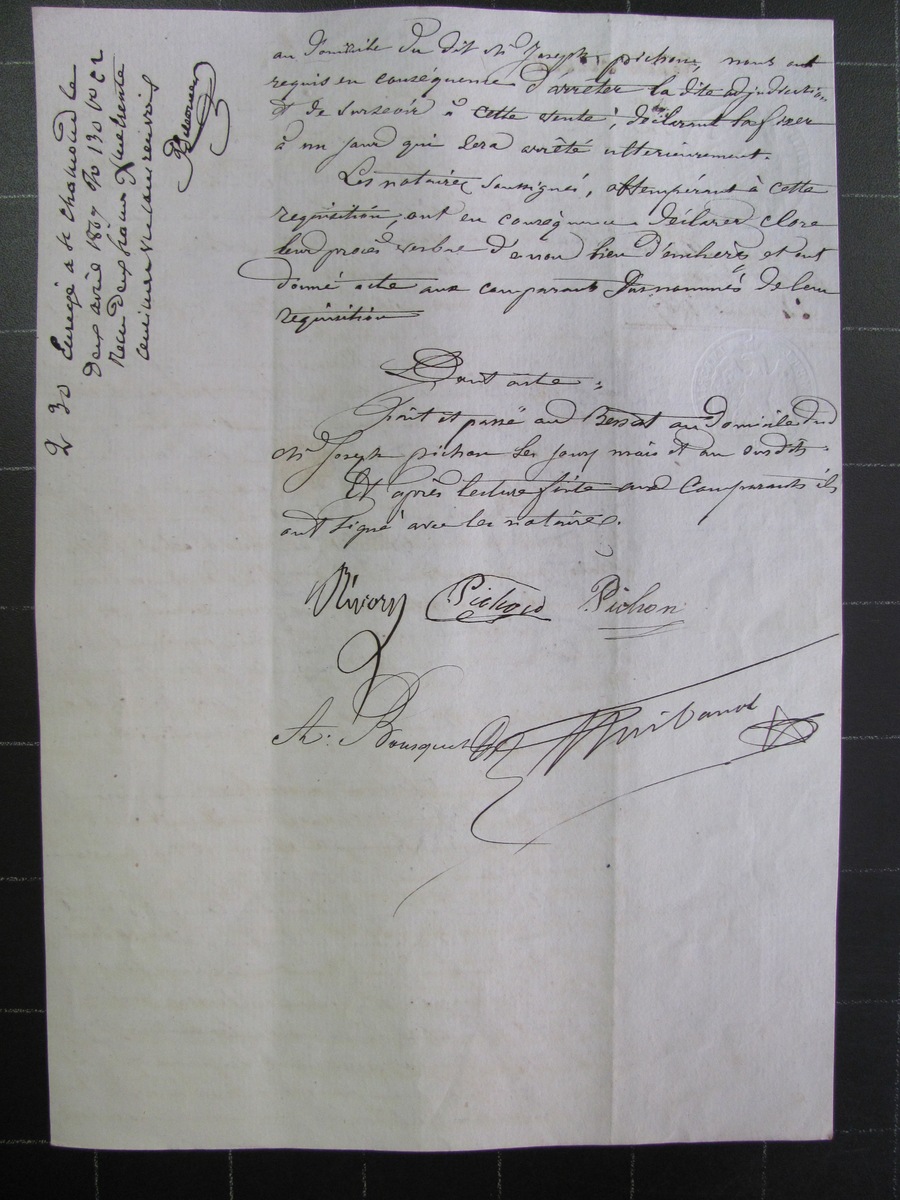 au domicile du dit Mr Joseph pichon, nous ont
requis en conséquence d'arrêter la dite adjudication
et de surseoir à cette vente, déclarant la fixer
à un jour qui sera arrêté ulterieurement.
Les notaires soussignés, obtempérant à cette
requisition, ont en conséquence déclaré clore
leur procès verbal d'envou bien d'enchères et ont
donné acte aux comparants susnommés de leur
requisition
Dont acte.
Fait et passé au Bessat au domicile dud
Mr Joseph pichon les jour, mois et an susdits.
Et après lecture faite aux comparants ils
ont signé avec les notaires.
Rivory Pichon Pichon
Ah. Bousquet
Enregé à St Chamond le
deux avril 18 fo 130 Vo C 2
Reçu deux francs
2 30